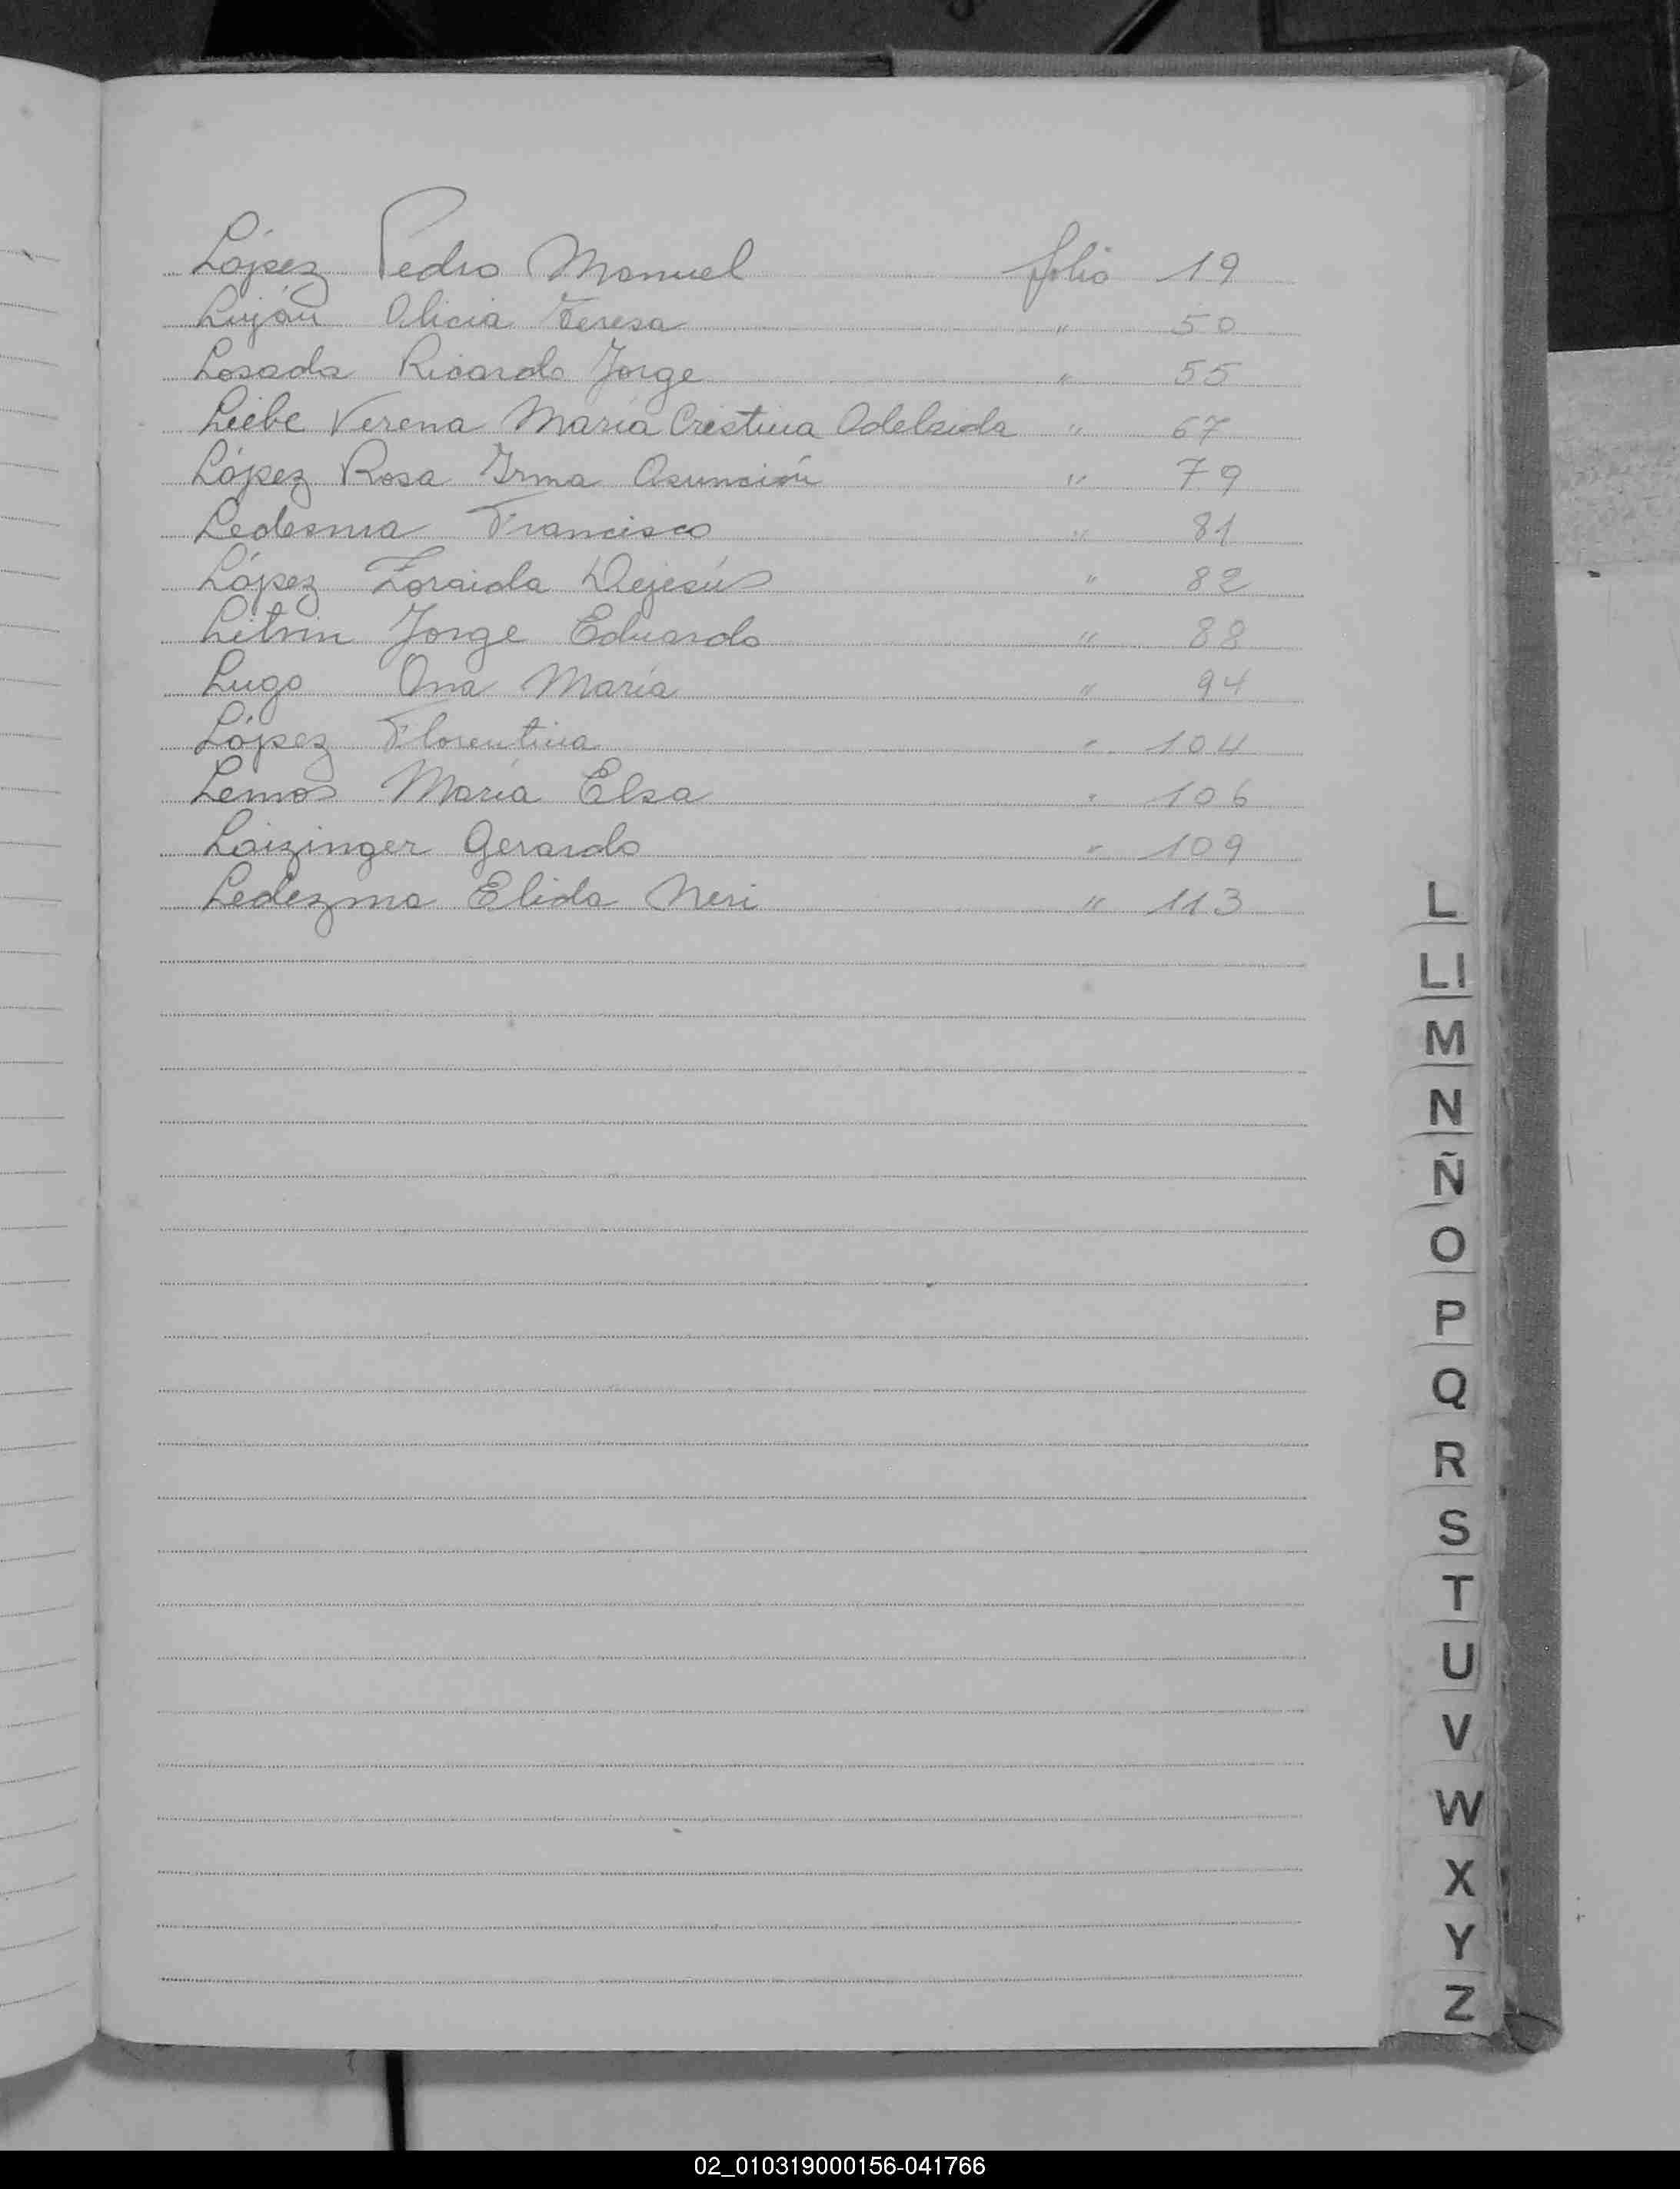 López Pedro Manuel folio 19
Luján Alicia Teresa " 50
Losada Ricardo Jorge " 55
Liebe Verena María Cristina Adelaida " 67
López Rosa Irma Asunción " 79
Ledesma Francisco " 81
López Zoraida Dejesús " 82
Litvin Jorge Eduardo " 88
Lugo Ana María " 94
López Florentina " 104
Lemos María Elsa " 106
Laizinger Gerardo " 109
Ledezma Elida Neri " 113
L
Ll
M
N
Ñ
O
P
Q
R
S
T
U
V
W
X
Y
Z
02_010319000156-041766